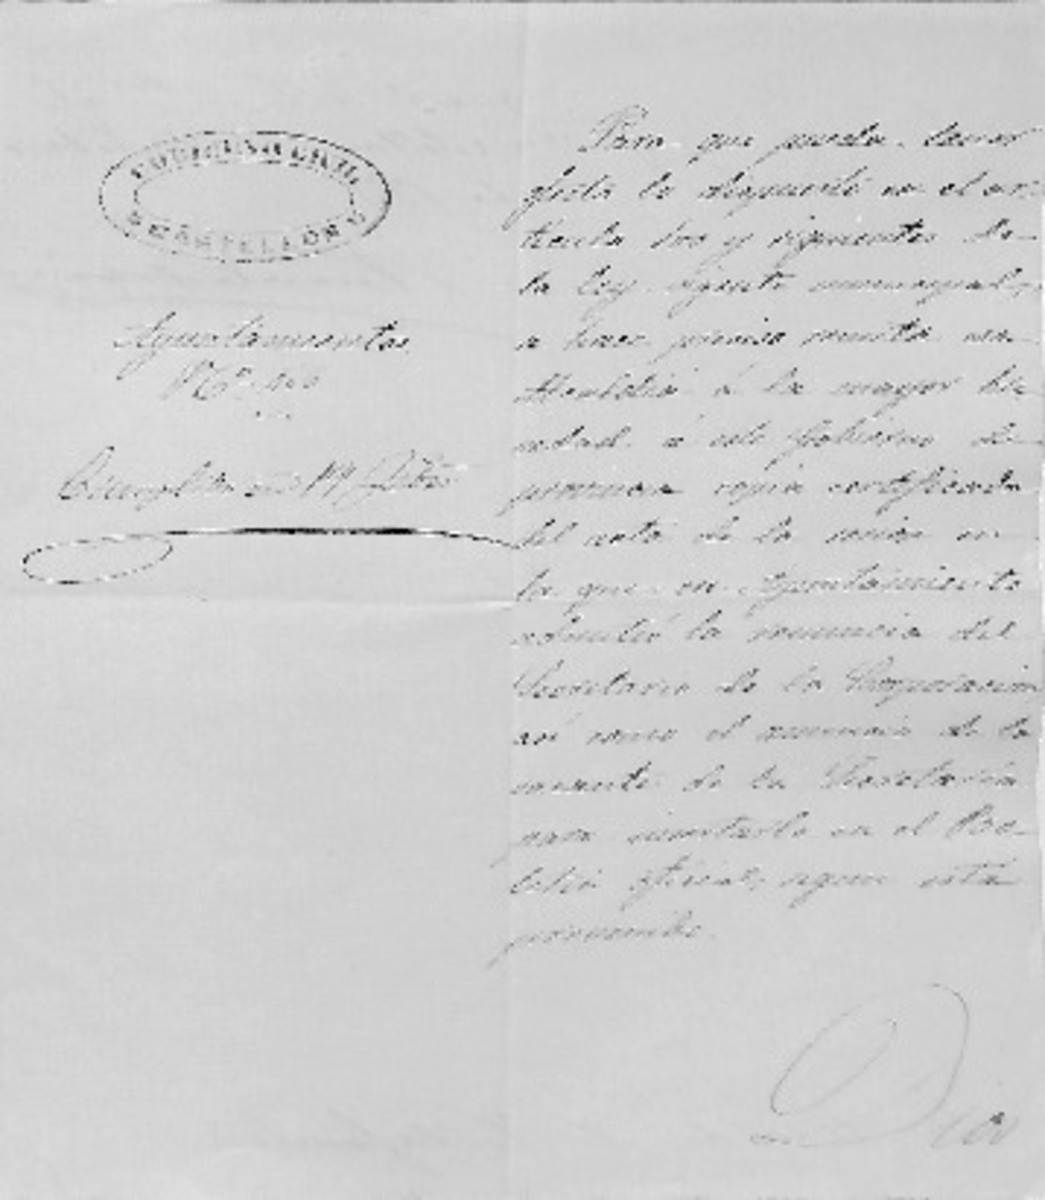 GOBIERNO CIVIL
DE CASTELLÓN
Ayuntamientos
Para que pueda tener
efecto lo dispuesto en el ar-
tículo y siguientes de
la ley vigente municipal,
hace preciso remita
Alcaldía á la mayor bre
vedad á este Gobierno de
provincia copia certificada
del acta de la sesión en
la que ese Ayuntamiento
admitió la renuncia del
Secretario de la Corporación
así como el anuncio de la
vacante de la Secretaría
para insertarlo en el Bo-
letín oficial, según está
prevenido.
Dios